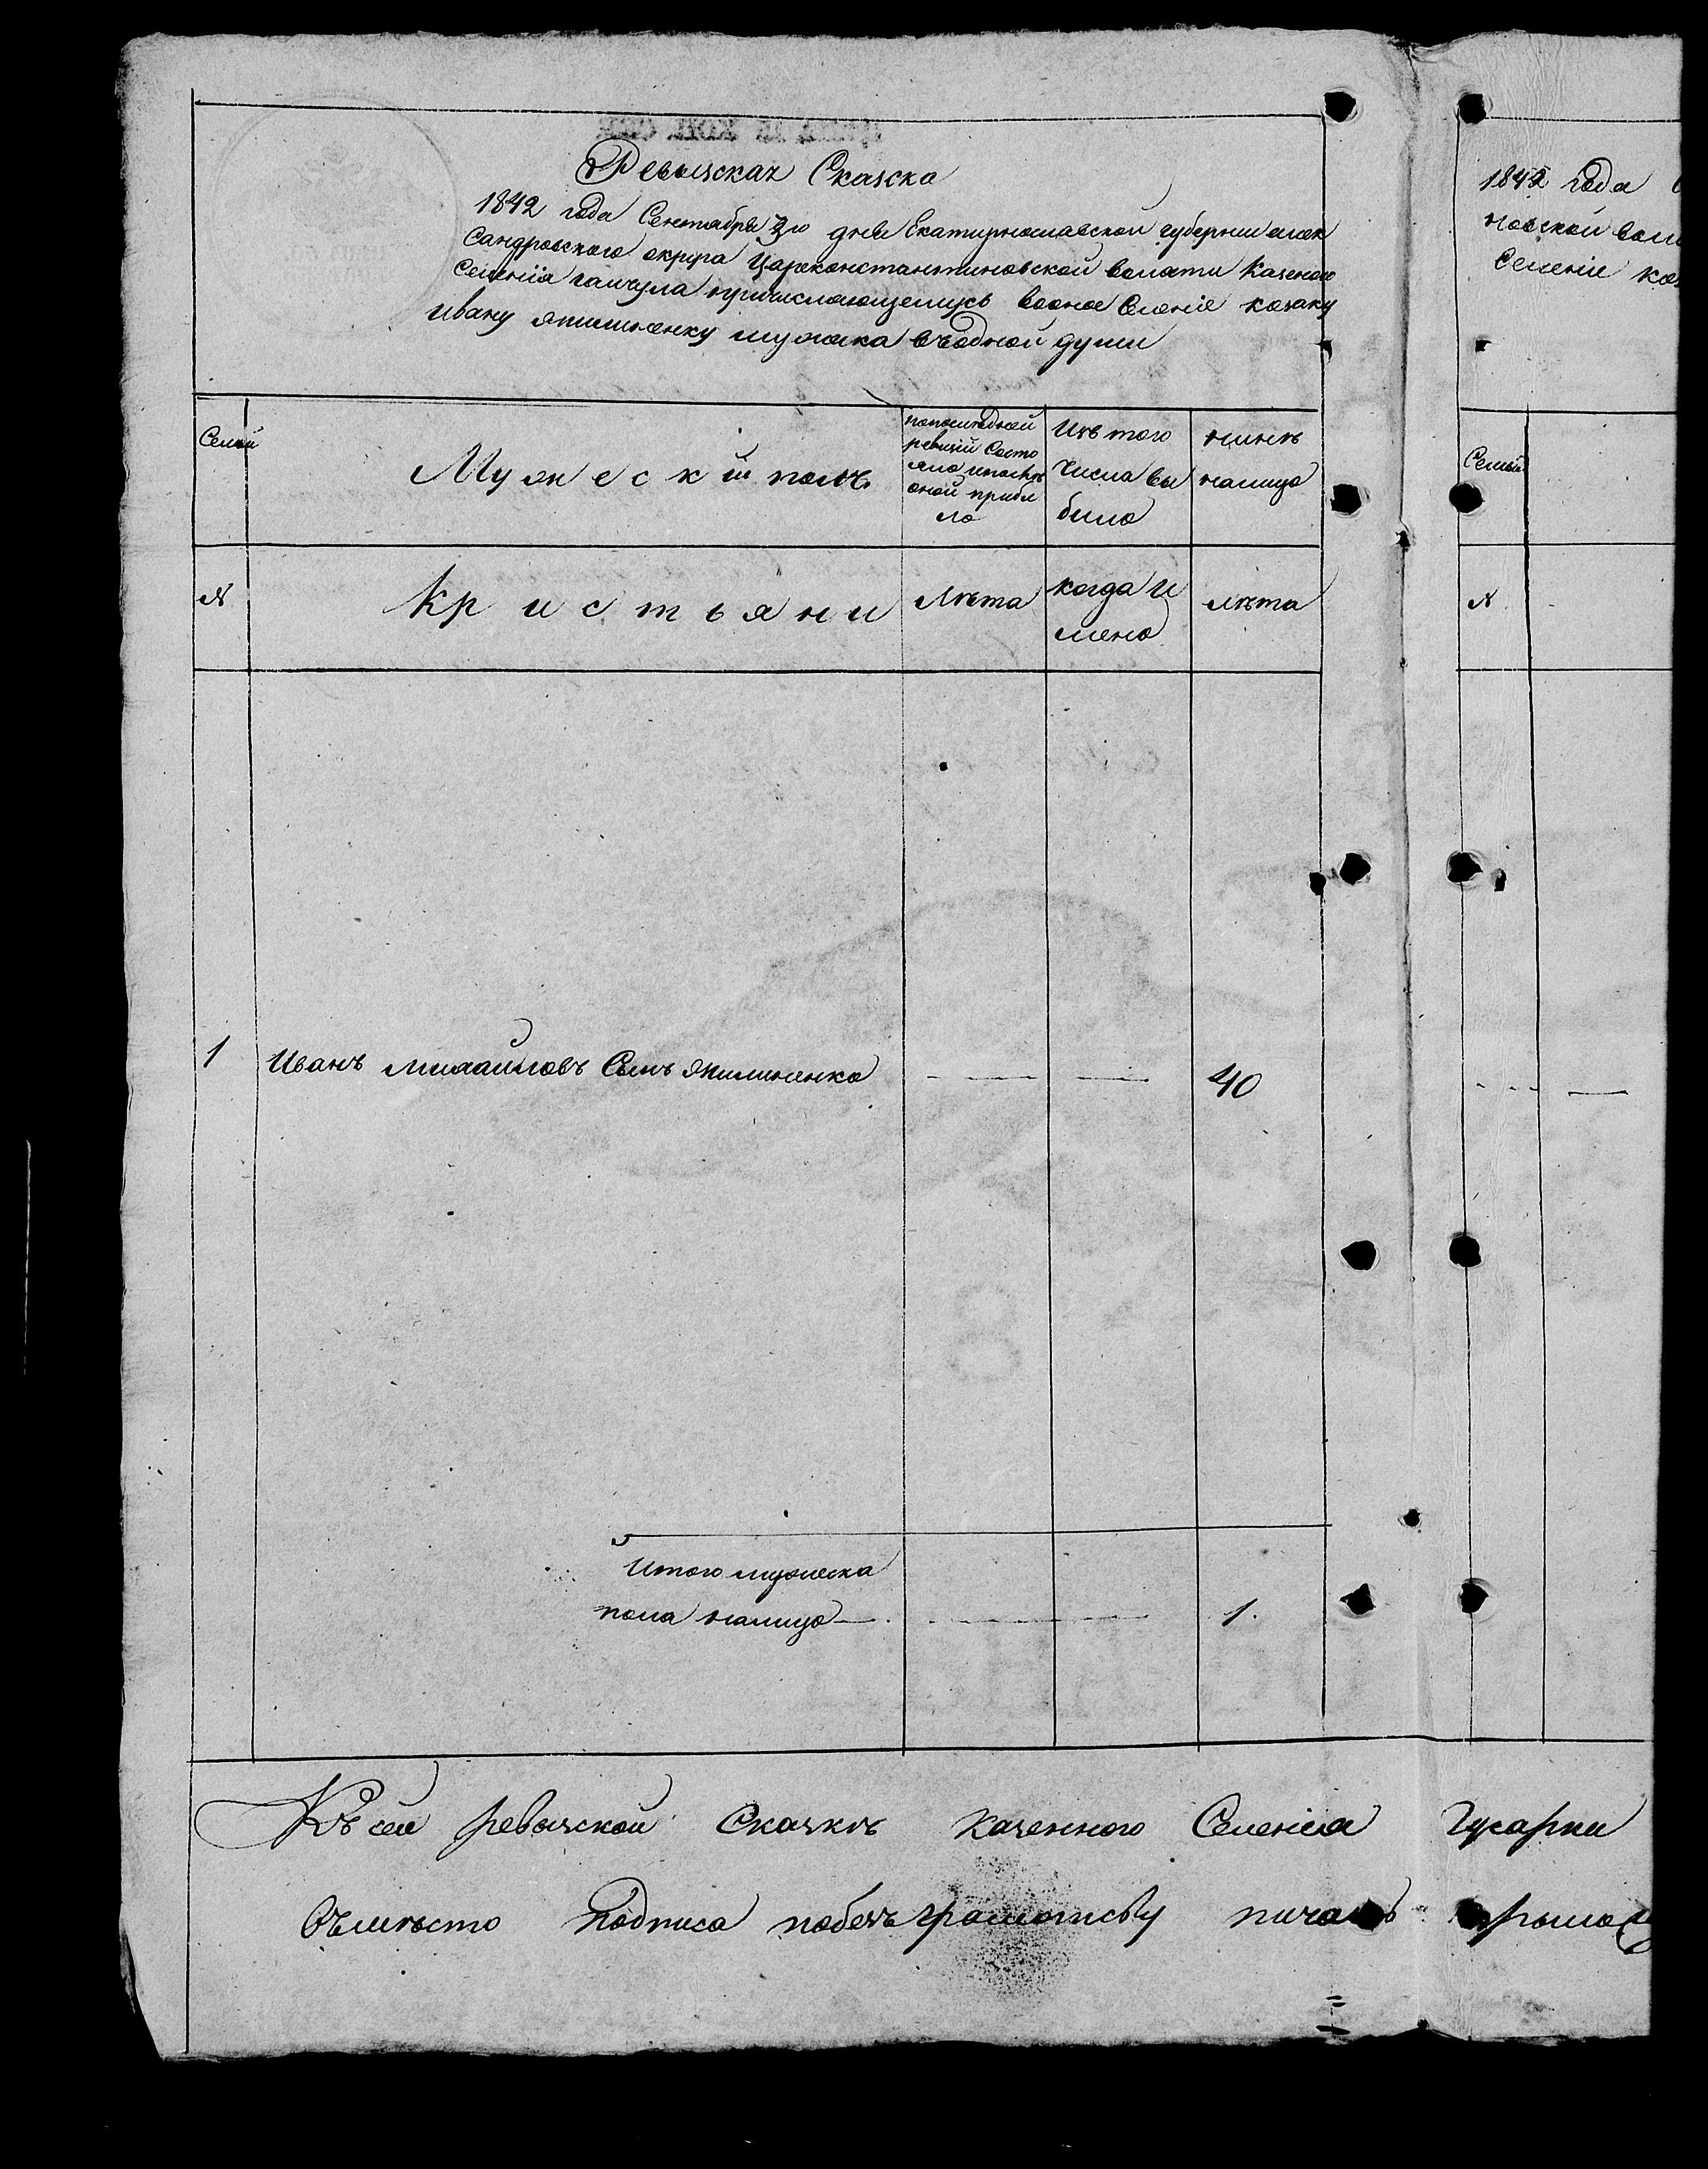 Ревызская Сказка
1842 года Сентября 3го дня Екатирнославской губернии алек
сандровского округа Цареконстантиновской волости Казеного
Селенія гайчула причисляющемусь вооное Селеніе козаку
Ивану япишненку мужеска въодной души
Семьи
Мужеский полъ
попоследней
ревизіи Состо
яло ипослѣ
оной прибы
ло
Изъ того
Числа вы
было
нинѣ
налицо
№
Кристьяни
Лѣта
когда и
мено
лѣта
1
Иванъ михайловъ Сынъ
40
Итого мужеска
пола налицо
1.
Къ сей ревызской Сказкѣ Казенного Селенія Гусарки
Въместо подписа
1842 года
новской воло
Селеніе каз
Семьи
№